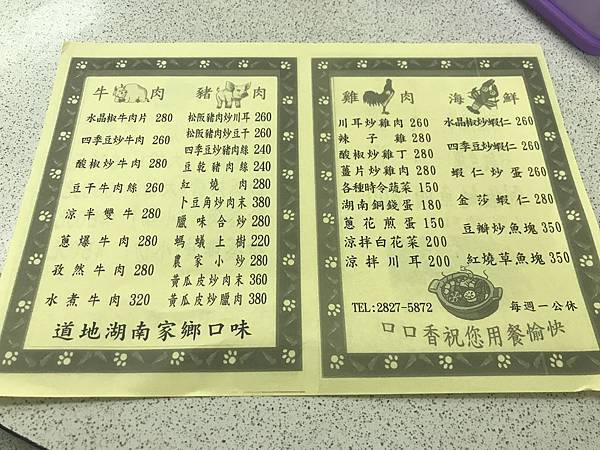 牛肉
水晶椒牛肉片 280
四季豆炒牛肉 260
酸椒炒牛肉 280
豆干牛肉絲 260
涼半雙牛 280
蔥爆牛肉 280
孜然牛肉 280
水煮牛肉 320
豬肉
松阪豬肉炒川耳 260
松阪豬肉炒豆干 260
四季豆炒豬肉絲 240
豆乾豬肉絲 240
紅燒肉 280
卜豆角炒肉末 380
臘味合炒 280
螞蟻上樹 220
農家小炒 280
黃瓜皮炒肉末 360
黃瓜皮炒臘肉 380
道地湖南家鄉口味
雞肉
川耳炒雞肉 260
辣子雞 280
酸椒炒雞丁 280
薑片炒雞肉 280
各種時令蔬菜 150
湖南銅錢蛋 180
蔥花煎蛋 150
涼拌白花菜 200
涼拌川耳 200
海鮮
水晶椒炒蝦仁 260
四季豆炒蝦仁 260
蝦仁炒蛋 260
金莎蝦仁 280
豆瓣炒魚塊 350
紅燒草魚塊 350
TEL:2827-5872 每週一公休
口口香祝您用餐愉快